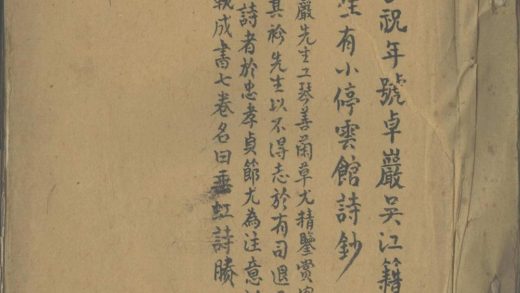 祝年號卓巖吳江籍
生有小停雲館詩鈔
巖先生工琴善蘭草尤精鑒賞
其衿先生以不得志於有司退
詩者於忠孝貞節尤為注意
載成書七卷名曰垂虹詩賸